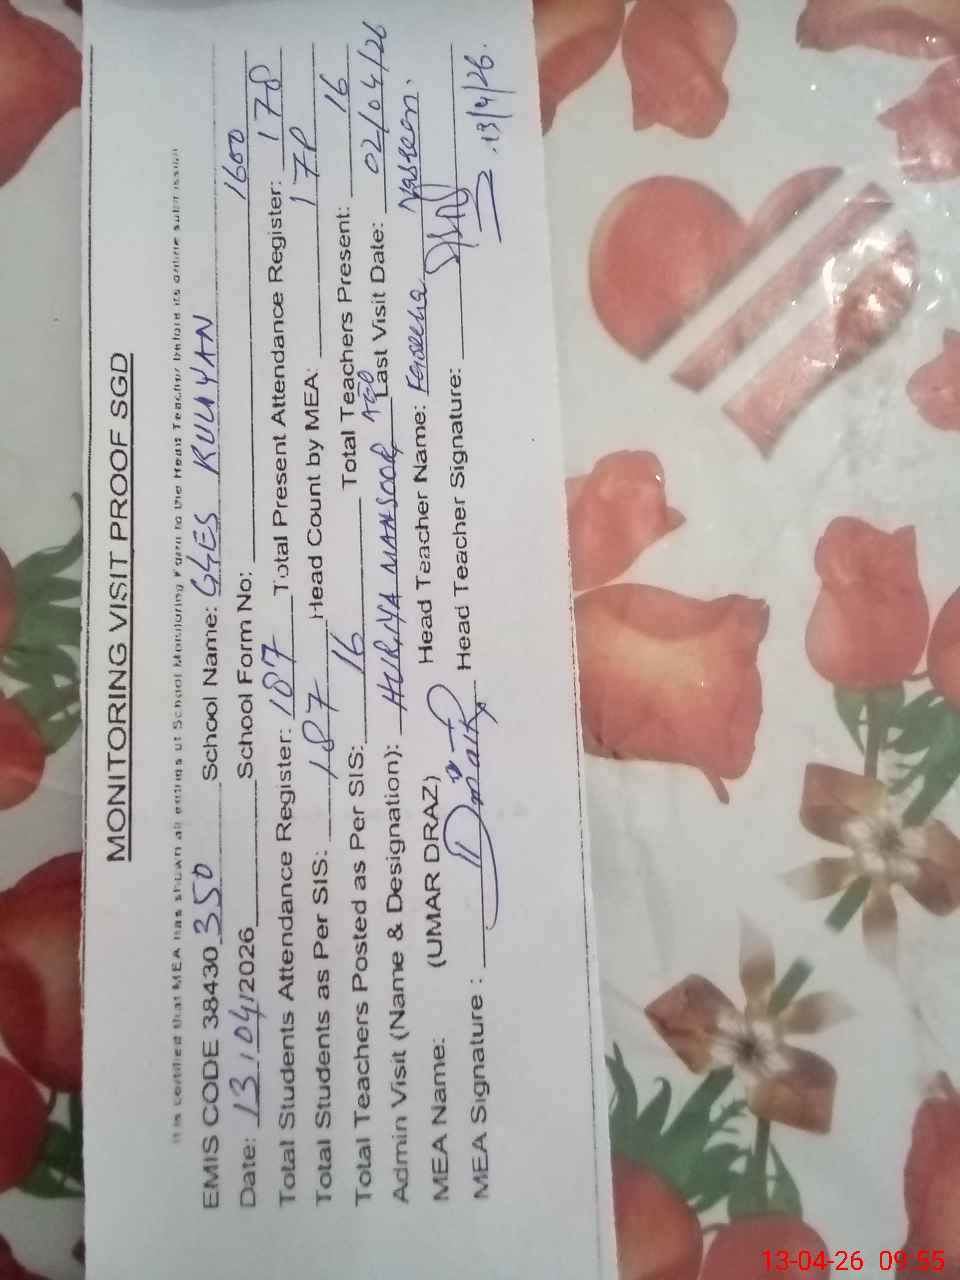 MONITORING VISIT PROOF SGD
It is certified that MEA has shown all entries of School Monitoring Form to the Head Teacher before its online submission
EMIS CODE 38430 350 School Name: GGES RULIYAN
Date: 13/04/2026 School Form No: 1600
Total Students Attendance Register: 187 Total Present Attendance Register: 178
Total Students as Per SIS: 187 Head Count by MEA: 178
Total Teachers Posted as Per SIS: 16 Total Teachers Present: 16
Admin Visit (Name & Designation): MANSOOR AEO Last Visit Date: 02/04/26
MEA Name: (UMAR DRAZ) Head Teacher Name: Nasreen.
MEA Signature : Head Teacher Signature:
13/4/26.
13-04-26 09:55